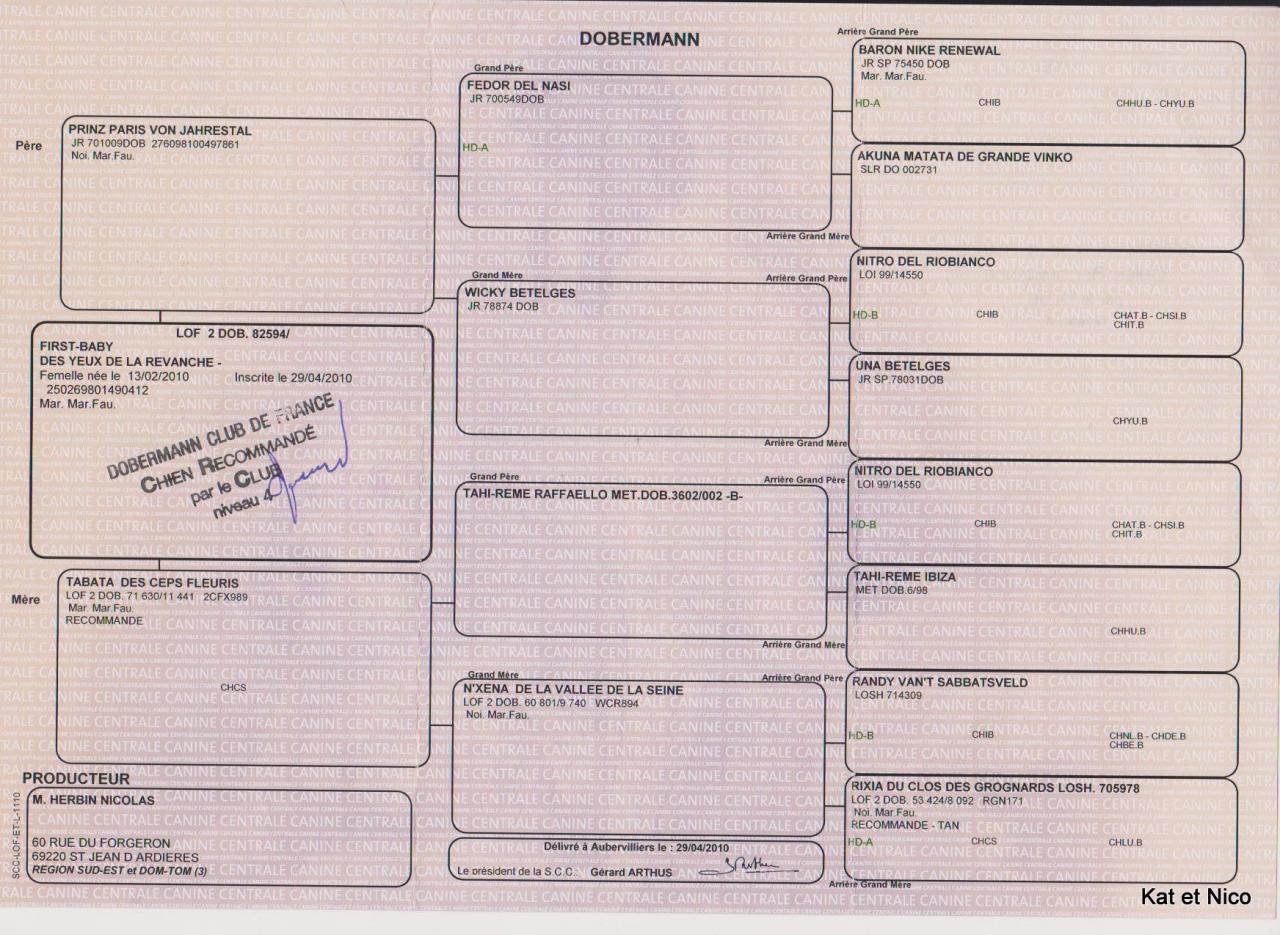 DOBERMANN
Père
PRINZ PARIS VON JAHRESTAL
JR 701009DOB 276098100497861
Noi. Mar.Fau.
LOF 2 DOB. 82594/
FIRST-BABY
DES YEUX DE LA REVANCHE -
Femelle née le 13/02/2010 Inscrite le 29/04/2010
250269801490412
Mar. Mar.Fau.
DOBERMANN CLUB DE FRANCE
CHIEN RECOMMANDÉ
par le CLUB
niveau 4
Mère
TABATA DES CEPS FLEURIS
LOF 2 DOB. 71 630/11 441 2CFX989
Mar. Mar.Fau.
RECOMMANDE
CHCS
PRODUCTEUR
M. HERBIN NICOLAS
60 RUE DU FORGERON
69220 ST JEAN D ARDIERES
REGION SUD-EST et DOM-TOM (3)
SCC-LOF-ET-L-1110
Grand Père
FEDOR DEL NASI
JR 700549DOB
HD-A
Grand Mère
WICKY BETELGES
JR 78874 DOB
Grand Père
TAHI-REME RAFFAELLO MET.DOB.3602/002 -B-
Grand Mère
N'XENA DE LA VALLEE DE LA SEINE
LOF 2 DOB. 60 801/9 740 WCR894
Noi. Mar.Fau.
Délivré à Aubervilliers le : 29/04/2010
Le président de la S.C.C.: Gérard ARTHUS
Arrière Grand Père
BARON NIKE RENEWAL
JR SP 75450 DOB
Mar. Mar.Fau.
HD-A CHIB CHHU.B - CHYU.B
AKUNA MATATA DE GRANDE VINKO
SLR DO 002731
Arrière Grand Mère
Arrière Grand Père
NITRO DEL RIOBIANCO
LOI 99/14550
HD-B CHIB CHAT.B - CHSI.B
CHIT.B
UNA BETELGES
JR SP.78031DOB
CHYU.B
Arrière Grand Mère
Arrière Grand Père
NITRO DEL RIOBIANCO
LOI 99/14550
HD-B CHIB CHAT.B - CHSI.B
CHIT.B
TAHI-REME IBIZA
MET DOB.6/98
CHHU.B
Arrière Grand Mère
Arrière Grand Père
RANDY VAN'T SABBATSVELD
LOSH 714309
HD-B CHIB CHNL.B - CHDE.B
CHBE.B
RIXIA DU CLOS DES GROGNARDS LOSH. 705978
LOF 2 DOB. 53 424/8 092 RGN171
Noi. Mar.Fau.
RECOMMANDE - TAN
HD-A CHCS CHLU.B
Arrière Grand Mère
Kat et Nico